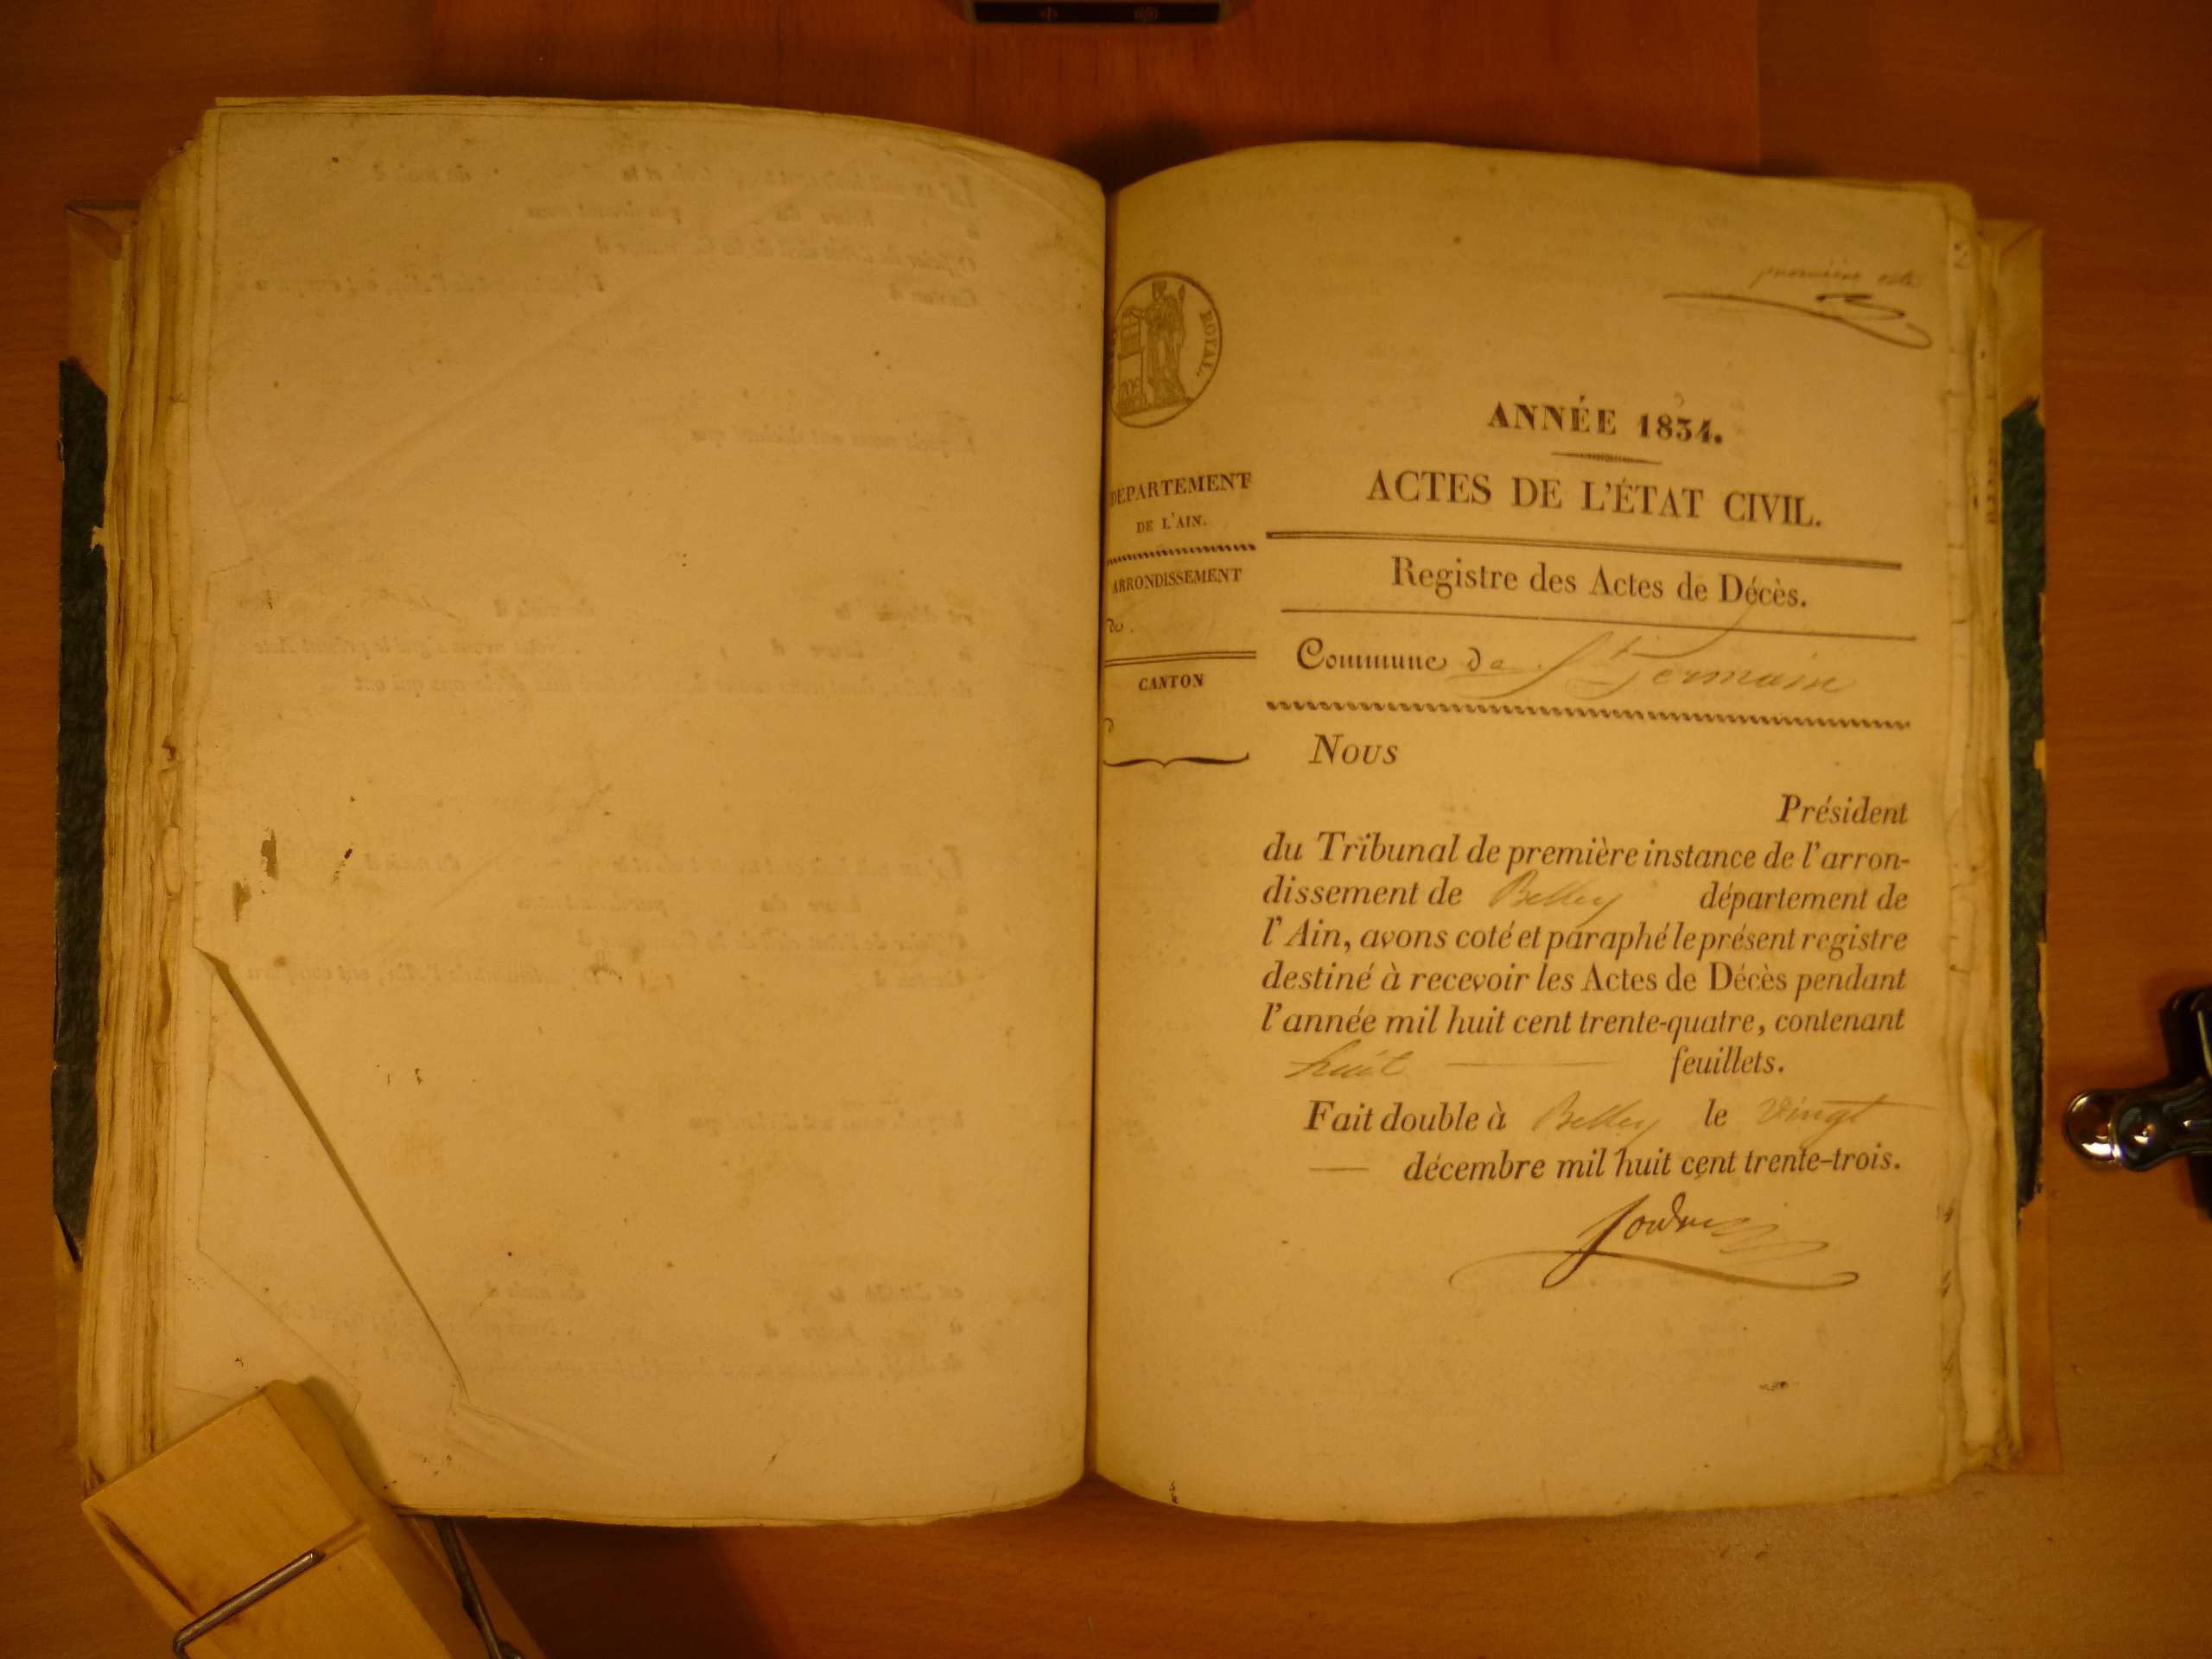 première
ROYAL.
ANNÉE 1834.
ACTES DE L'ÉTAT CIVIL.
DÉPARTEMENT
DE L'AIN.
ARRONDISSEMENT
du
CANTON
D
Registre des Actes de Décès.
Commune de St Germain
Nous
Président
du Tribunal de première instance de l'arron-
dissement de Belley département de
l'Ain, avons coté et paraphé le présent registre
destiné à recevoir les Actes de Décès pendant
l'année mil huit cent trente-quatre, contenant
huit feuillets.
Fait double à Belley le vingt
décembre mil huit cent trente-trois.